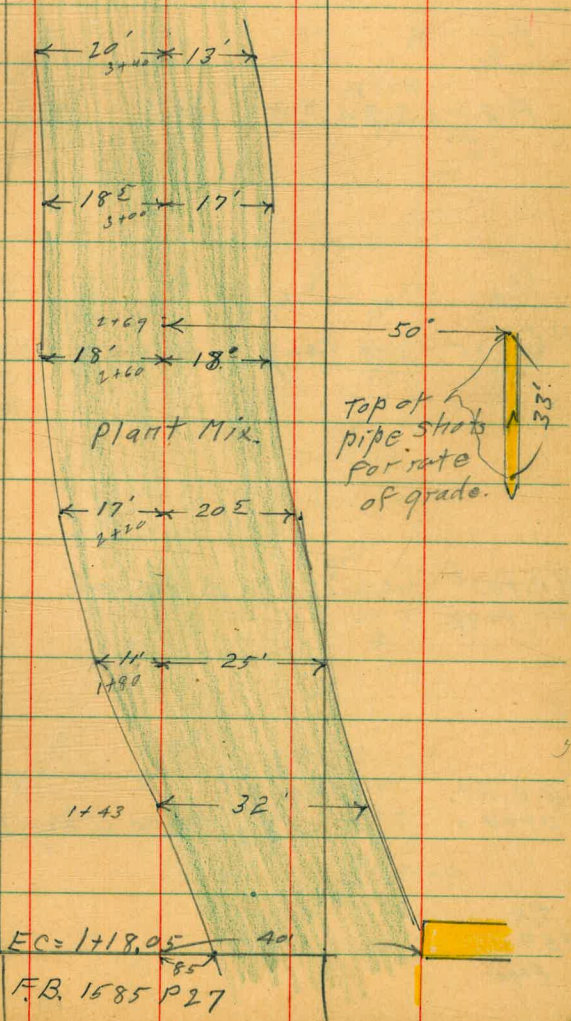 20' 13'
3+40
18⁵ 17'
3+00
2+69 50'
18' 18'
2+60
Plant Mix.
Top of
pipe shots
for rate
of grade.
33'
17' 20⁵
2+20
11' 25'
1+80
1+43 32'
EC=1+18.05 40'
85
F.B. 1585 P27